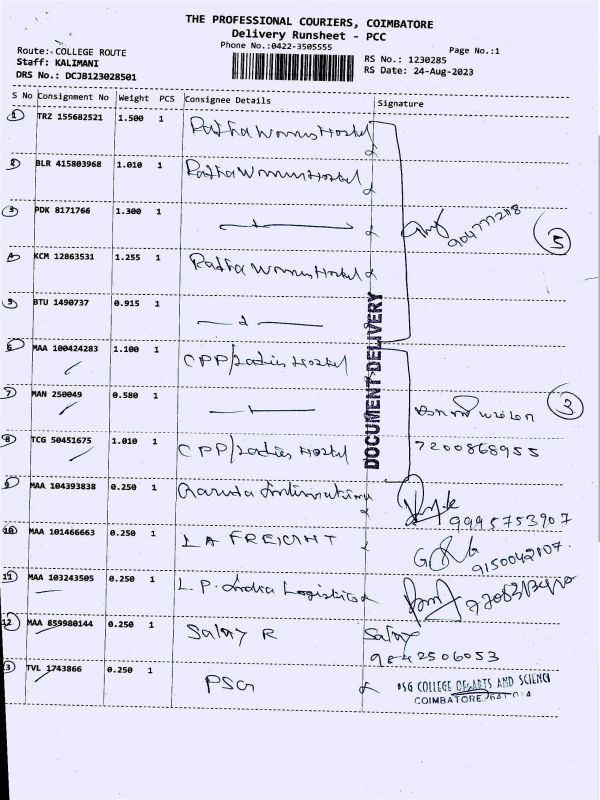 THE PROFESSIONAL COURIERS, COIMBATORE
Delivery Runsheet - PCC
Phone No.:0422-3505555
Page No.:1
Route: COLLEGE ROUTE
Staff: KALIMANI
DRS No.: DCJB123028501
RS No.: 1230285
RS Date: 24-Aug-2023
S No Consignment No Weight PCS Consignee Details Signature
1 TRZ 155682521 1.500 1 Hostel
2 BLR 415803968 1.010 1 Hostel
3 PDK 8171766 1.300 1
5
4 KCM 12863531 1.255 1 Hostel
5 BTU 1490737 0.915 1
DOCUMENT DELIVERY
6 MAA 100424283 1.100 1 CPP/Ladies Hostel
7 MAN 250049 0.580 1
3
8 TCG 50451675 1.010 1 CPP/Ladies Hostel 7200868955
9 MAA 104393838 0.250 1 Garuda
9995753907
10 MAA 101466663 0.250 1 LA FREIGHT
9150042107.
11 MAA 103243505 0.250 1 L.P. India Logistics
12 MAA 859980144 0.250 1 Salary R
9842506053
13 TVL 1743866 0.250 1 PSG
PSG COLLEGE OF ARTS AND SCIENCE
COIMBATORE 641 014